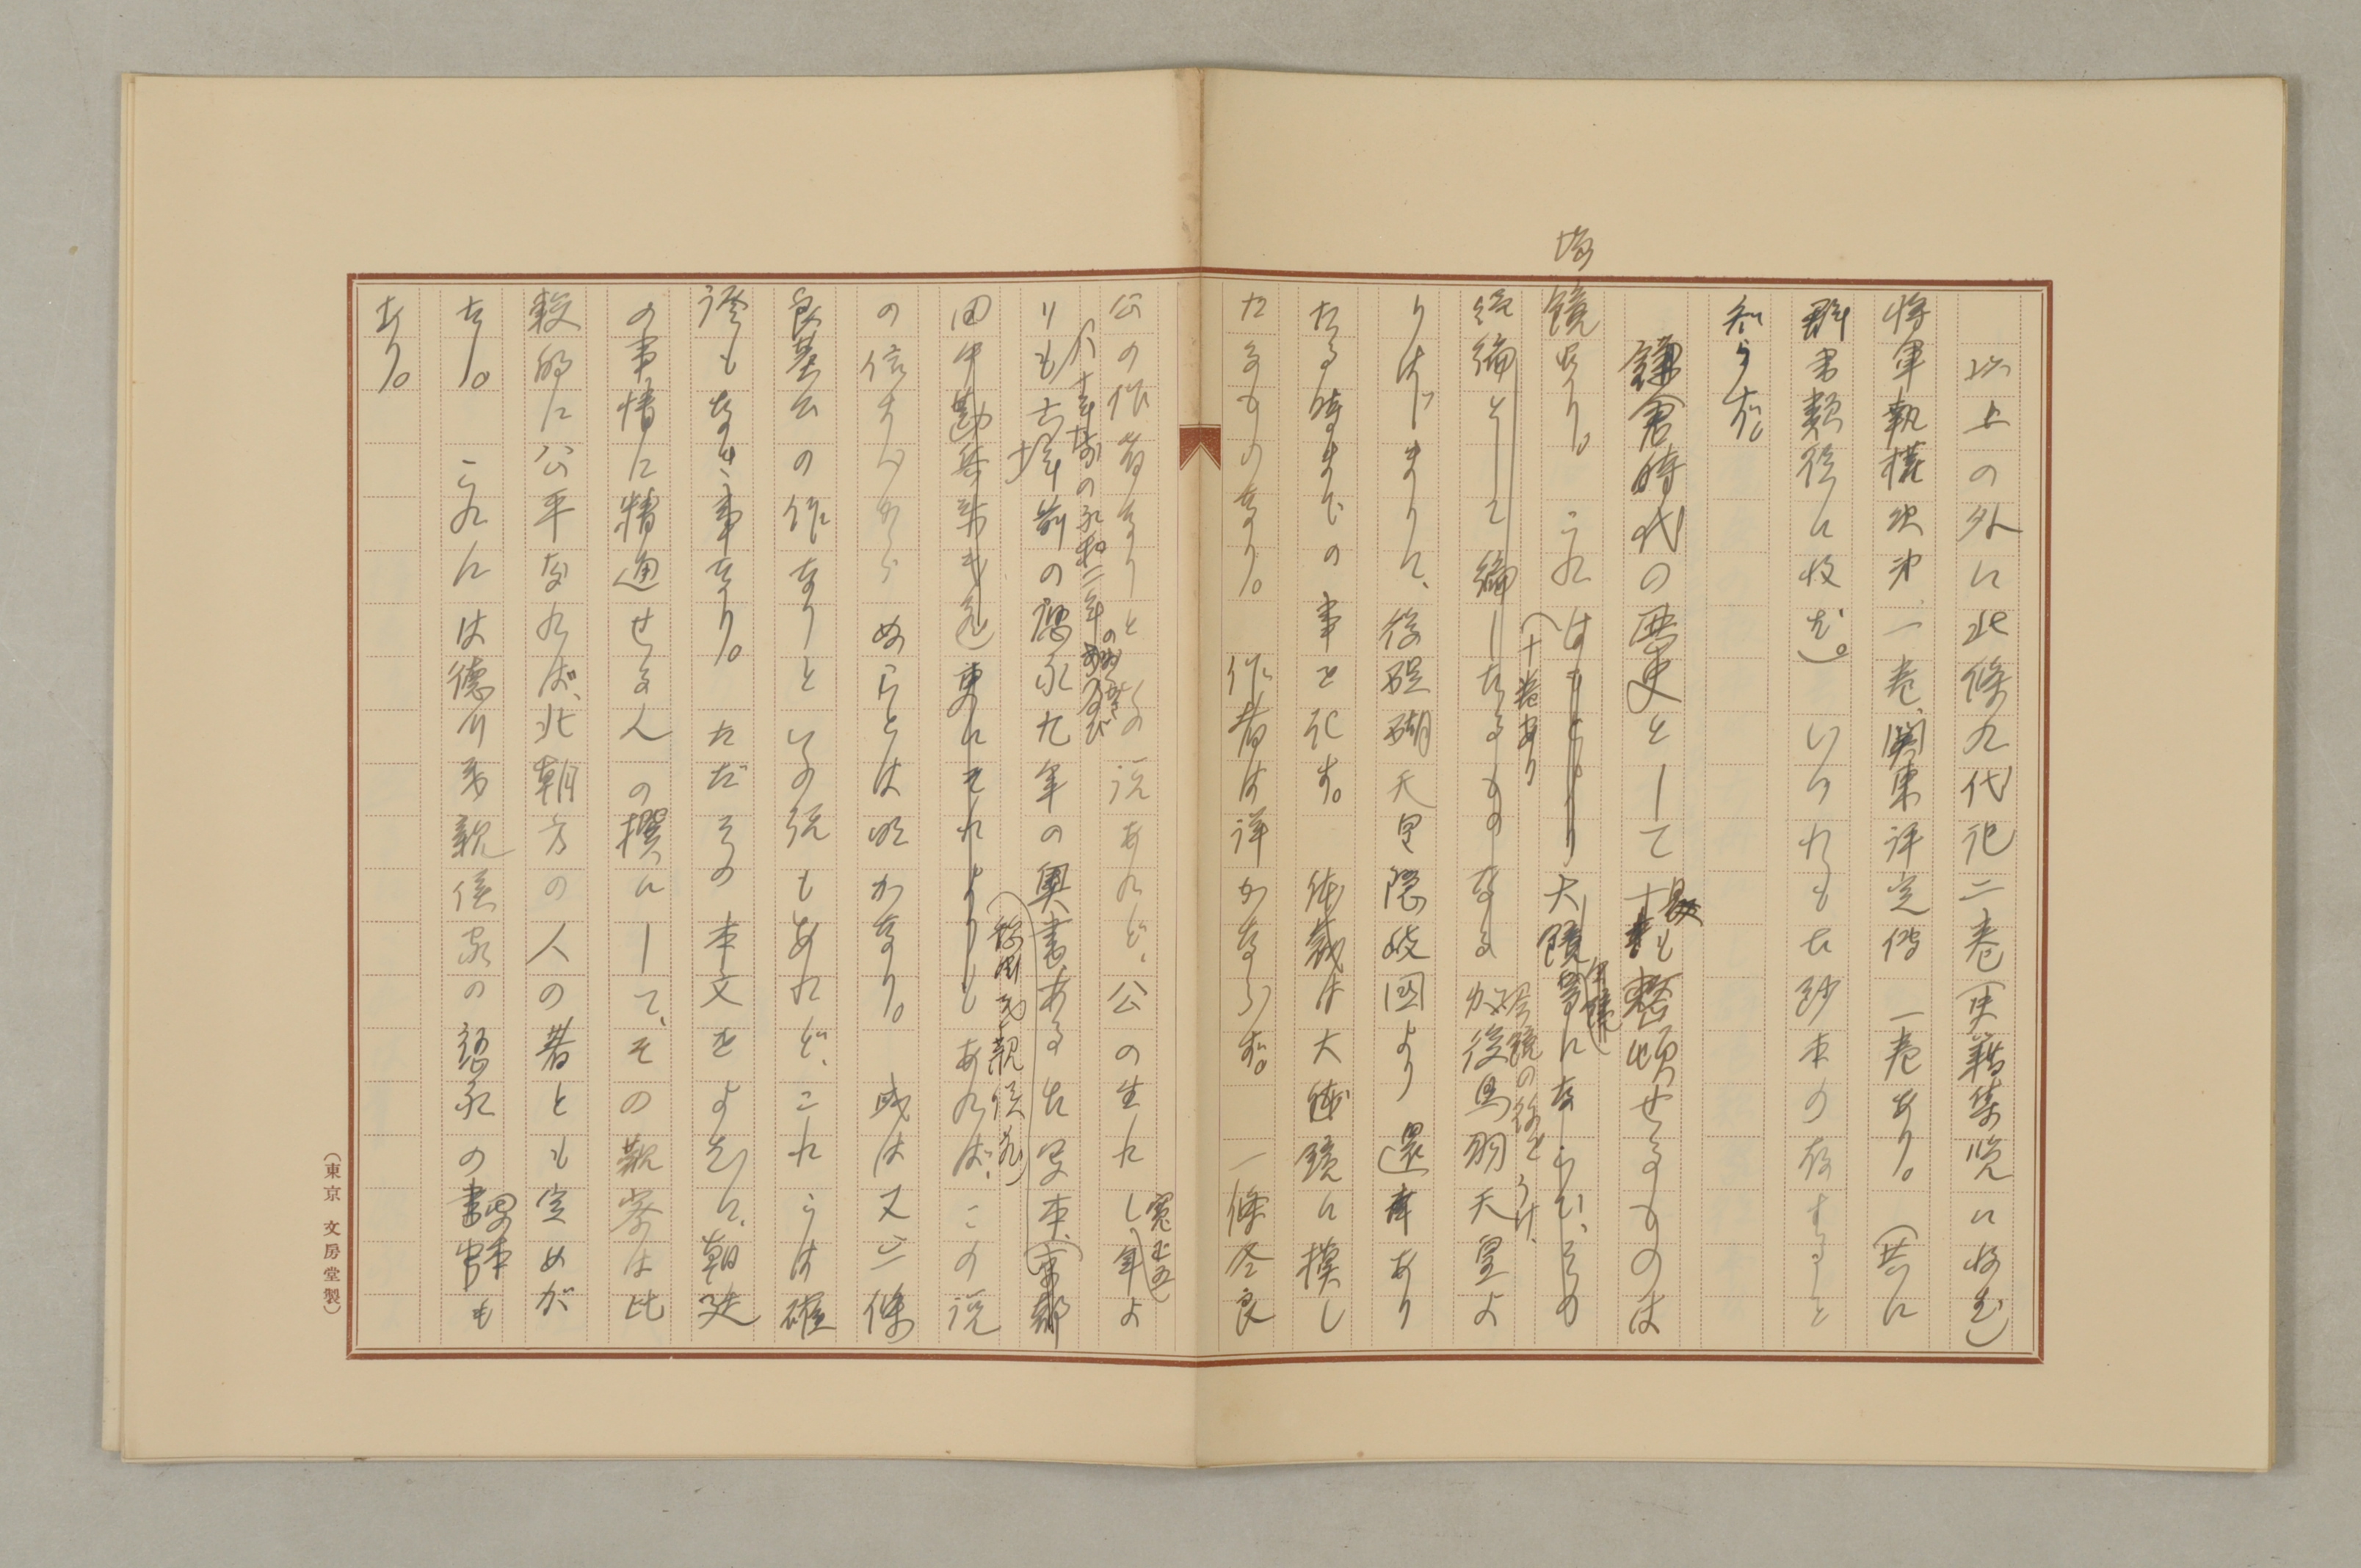 以上の外に北條九代記二巻(史籍集覧に收む)
將軍執権次第一巻、関東評定傳一巻あり。(共に
群書類従に收む。)いづれも古鈔本の存すること
知らず。
鎌倉時代の歴史として最も整頓せるものは
増
鏡なり。これはもとより大鏡等にならひ、その
(十巻あり
今鏡
水鏡の後をうけ、
続編として編したるものなる後鳥羽天皇よ
りはじまりに、後醍醐天皇隠岐国より還幸あり
たる時までの事を記す。体裁は大体大鏡に模し
たるものなり。作者は詳かならず。一條冬良
公の作者なりとの説あれど、公の生れし年よ
(寛正五)
八十年前の永和二年の奥がき及び
りも六十年前の應永九年の奥書ある古写本、(東都
田中勘兵衛氏蔵)更にそれよりもあれば、この説
の信ずべからぬことは明かなり。或は又二條
良基公の作なりといふ説もあれど、これらは確
證もなき事なり。ただその本文をよむに、朝廷
の事情に精通せる人の撰にして、その観察は比
較的に公平なれば、北朝方の人の著とも定めが
たし。これには徳川秀親侯家の應永の書写本も
あり。
(東京 文房堂製)